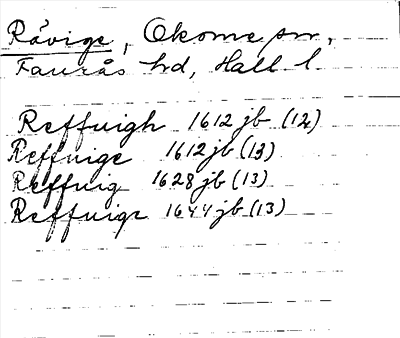 Rävige, Okome sn,
Faurås hd, Hall l.
Reffuigh 1612 jb (12)
Reffuige 1612 jb (13)
Reffuig 1628 jb (13)
Reffuige 1644 jb (13)